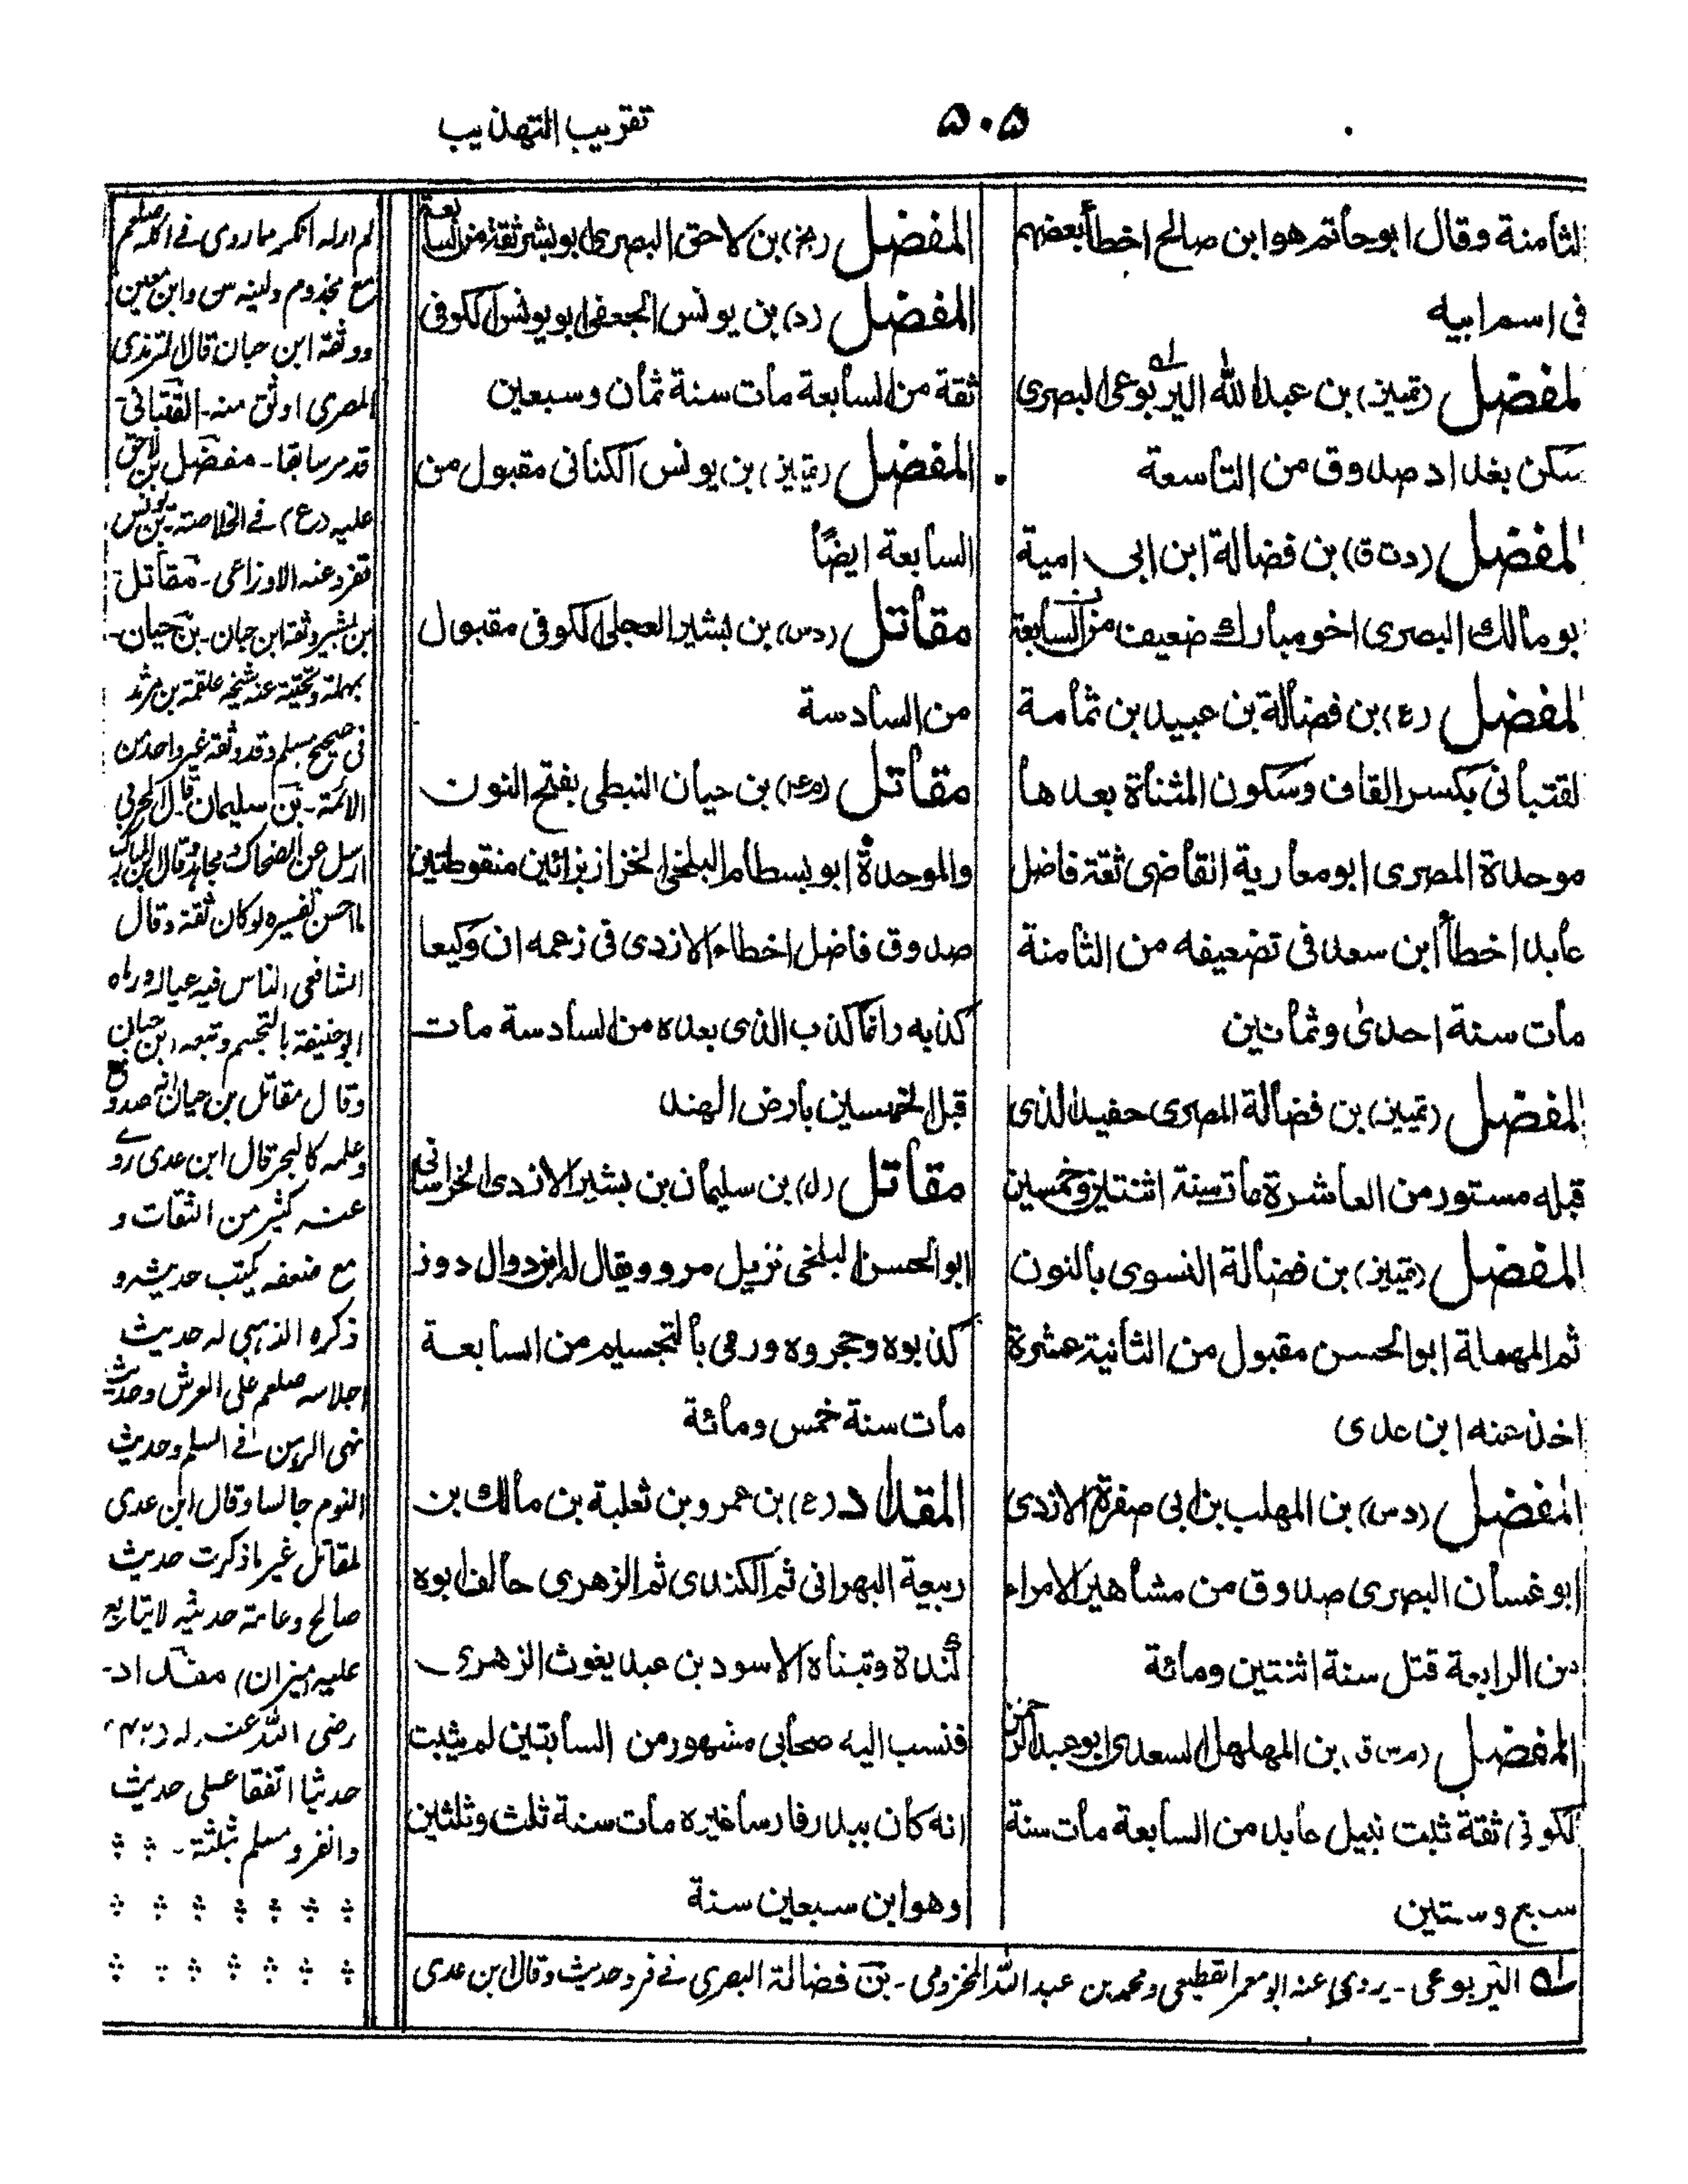 تقريب التهذيب
۵۰۵
الثامنة وقال ابوحاتم هو ابن صالح اخطأ بعضهم
فى اسم ابيه
المفضل (تمييز) بن عبد الله اليربوعى البصرى
سكن بغداد صدوق من التاسعة
المفضل (دت ق) بن فضالة ابن ابى امية
ابو مالك البصرى اخو مبارك ضعيف من السابعة
المفضل (ع) بن فضالة بن عبيد بن ثمامة
القتبانى بكسر القاف وسكون المثناة بعدها
موحدة المصرى ابو معاوية القاضى ثقة فاضل
عابد اخطأ ابن سعد فى تضعيفه من الثامنة
مات سنة احدى وثمانين
المفضل (تمييز) بن فضالة المصرى حفيد الذى
قبله مستور من العاشرة مات سنة اثنتين وخمسين
المفضل (تمييز) بن فضالة النسوى بالنون
ثم المهملة ابو الحسن مقبول من الثانية عشرة
اخذ عنه ابن عدى
المفضل (دس) بن المهلب بن ابى صفرة الازدى
ابو غسان البصرى صدوق من مشاهير الامراء
من الرابعة قتل سنة اثنتين ومائة
المفضل (م س ق) بن المهلهل السعدى ابو عبد الرحمن
الكوفى ثقة ثبت نبيل عابد من السابعة مات سنة
سبع وستين
المفضل (بخ) بن لاحق البصرى ابو بشر ثقة من السابعة
المفضل (د) بن يونس الجعفى ابو يونس الكوفى
ثقة من السابعة مات سنة ثمان وسبعين
المفضل (تمييز) بن يونس الكنانى مقبول من
السابعة ايضًا
مقاتل (دس) بن بشير العجلى الكوفى مقبول
من السادسة
مقاتل (م عه) بن حيان النبطى بفتح النون
والموحدة ابو بسطام البلخى الخزاز بزائين منقوطتين
صدوق فاضل اخطاء الازدى فى زعمه ان وكيعا
كذبه وانما كذب الذى بعده من السادسة مات
قبل الخمسين بارض الهند
مقاتل (ل) بن سليمان بن بشير الازدى الخراسانى
ابو الحسن البلخى نزيل مرو ويقال له ابن دوال دوز
كذبوه وهجروه ورمى بالتجسيم من السابعة
مات سنة خمس ومائة
المقداد (ع) بن عمرو بن ثعلبة بن مالك بن
ربيعة البهرانى ثم الكندى ثم الزهرى حالف ابوه
كندة وتبناه الاسود بن عبد يغوث الزهرى
فنسب اليه صحابى مشهور من السابقين لم يثبت
انه كان ببدر فارسا غيره مات سنة ثلث وثلثين
وهو ابن سبعين سنة
لم ار له انكر مما روى فے اكله صلعم
مع مجذوم ولينه س وابن معين
ووثقه ابن حبان قال الترمذى
المصرى اوثق منه - القتبانى
قد مر سابقا - مفضل بن لاحق
عليه (ع) فے الخلاصة - بن يونس
تفرد عنه الاوزاعى - مقاتل
بن بشير وثقه ابن حبان - بن حيان -
بمهملة وتحتية عنه شيخه علقمة بن مرثد
فى صحيح مسلم وقد وثقه غير واحد من
الائمة - بن سليمان قال الحربى
ارسل عن الضحاك ومجاهد وقال ابن المبارك
ما احسن تفسيره لو كان ثقة وقال
الشافعى الناس فيه عيال ورماه
ابو حنيفة بالتجسم وتبعه ابن حبان
وقال مقاتل بن حيان انه صدوع
وعلمه كالبحر قال ابن عدى روے
عنه كثير من الثقات و
مع ضعفه يكتب حديثه و
ذكره الذهبى له حديث
اجلاسه صلعم على العرش وحديث
نهى الرهن فے السلم وحديث
النوم جالسا وقال ابن عدى
لمقاتل غير ما ذكرت حديث
صالح وعامة حديثه لا يتابع
عليه (ميزان) مقداد -
رضى الله عنه له (۴۲)
حديثا اتفقا على حديث
وانفرد مسلم بثلثة -
له اليربوعى - يروى عنه ابو معمر القطيعى ومحمد بن عبد الله المخزومى - بن فضالة البصرى فے فرد حديث وقال ابن عدى